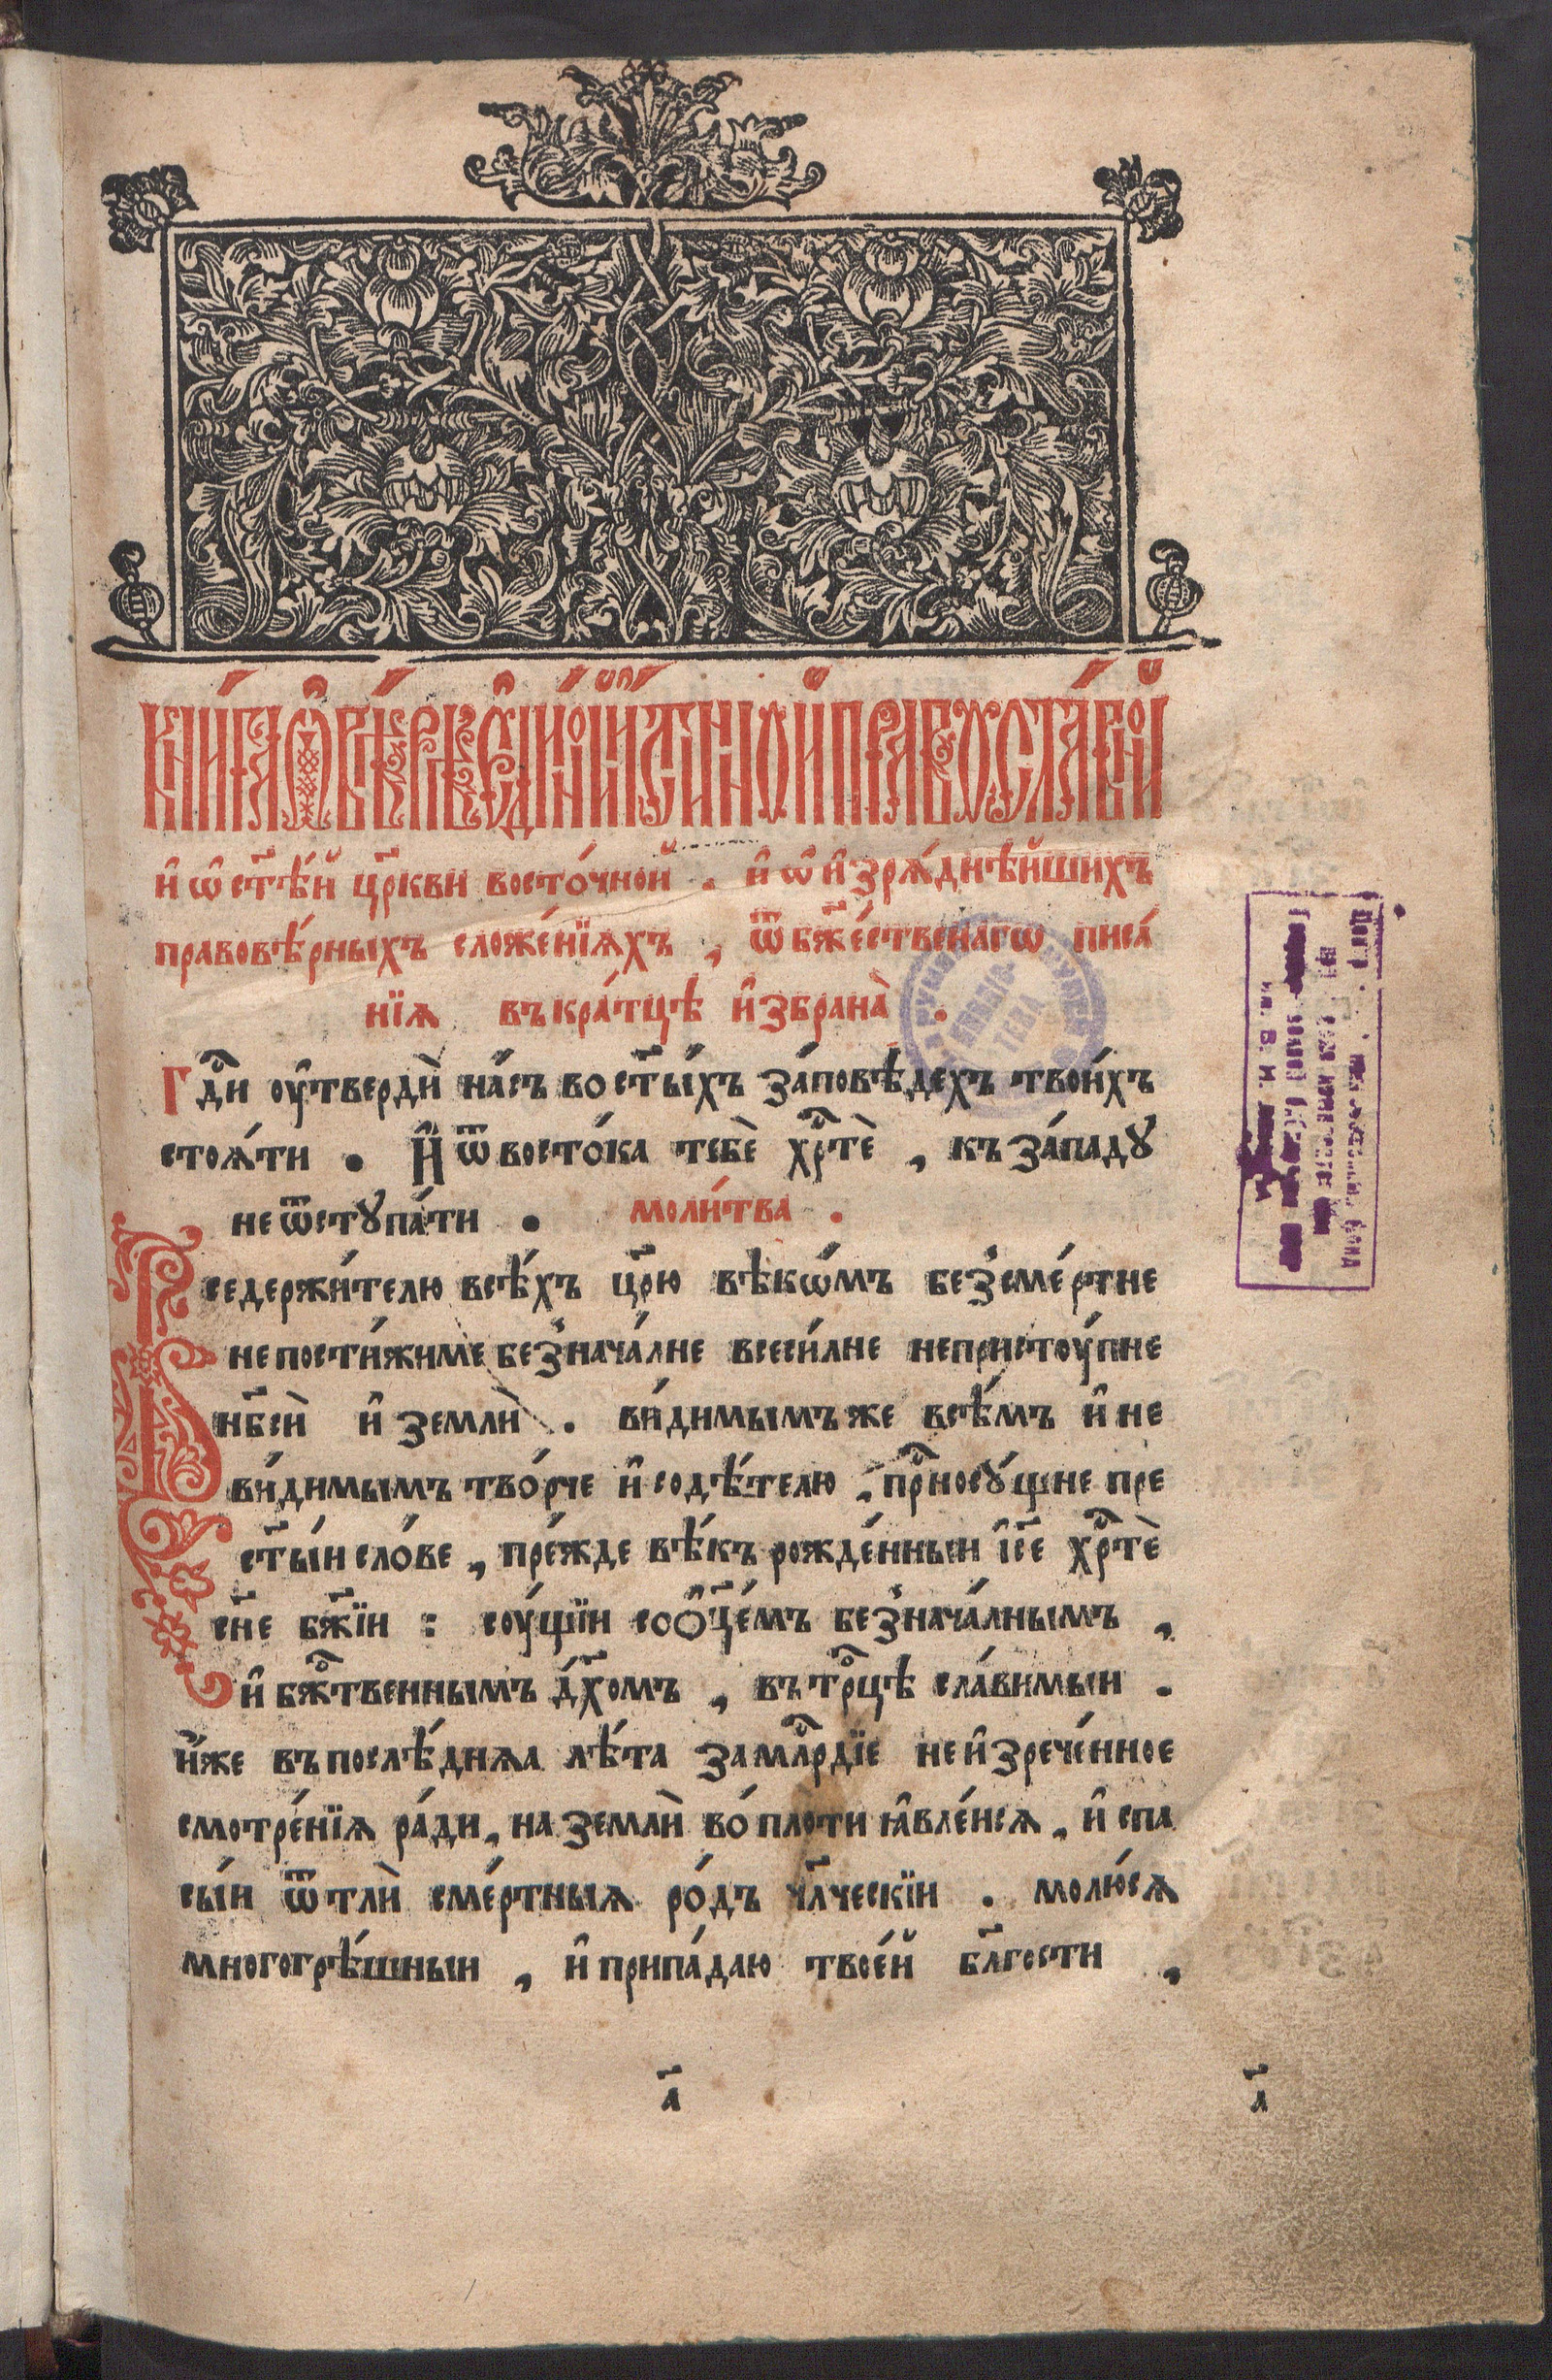 Кни́га ѡ҆ вѣ́рѣ є҆ди́ной и҆́стинной правосла́вной
и҆ ѡ҆ ст҃ѣ́й цр҃кви восто́чной . и҆ ѡ҆ и҆зрѧ́днѣйшихъ
правовѣ́рныхъ сложе́нїѧхъ , ѿ бж҃е́ственагѡ писа́
нїѧ въкра́тцѣ и҆збрана̀ .
Гдⷭ҇и оу҆твердѝ на́съ во ст҃ы́хъ за́повѣдехъ твои́хъ
стоѧ́ти . И҆ ѿ восто́ка тебѐ хрⷭ҇тѐ , къ за́падꙋ
не ѿстꙋпа́ти . моли́тва .
Вседержи́телю всѣ́хъ цр҃ю вѣкѡ́мъ безсме́ртне
непости́жиме безнача́лне всеси́лне непристоу́пне
нб҃сѝ и҆ землѝ . ви́димымъ же всѣ́мъ и҆ не
ви́димымъ тво́рче и҆ содѣ́телю , прⷭ҇носꙋ́щне пре
ст҃ы́и сло́ве , пре́жде вѣ́къ рожде́нныи і҆с҃е хрⷭ҇тѐ
сн҃е бж҃їи : соу́щїи со ѻ҆ц҃е́мъ безнача́лнымъ ,
и҆ бжⷭ҇твеннымъ дх҃омъ , въ трⷪ҇цѣ сла́вимыи .
и҆́же въ послѣ́днѧѧ лѣ́та за млⷭ҇рдїе неи҆зрече́нное
смотре́нїѧ ра́ди , на землѝ во́ плоти ꙗ҆вле́йсѧ , и҆ спа
сы́и ѿ тлѝ сме́ртныѧ ро́дъ чл҃ческїи . молю́сѧ
многогрѣ́шныи , и҆ припа́даю твое́й бл҃гости ,
а҃ а҃